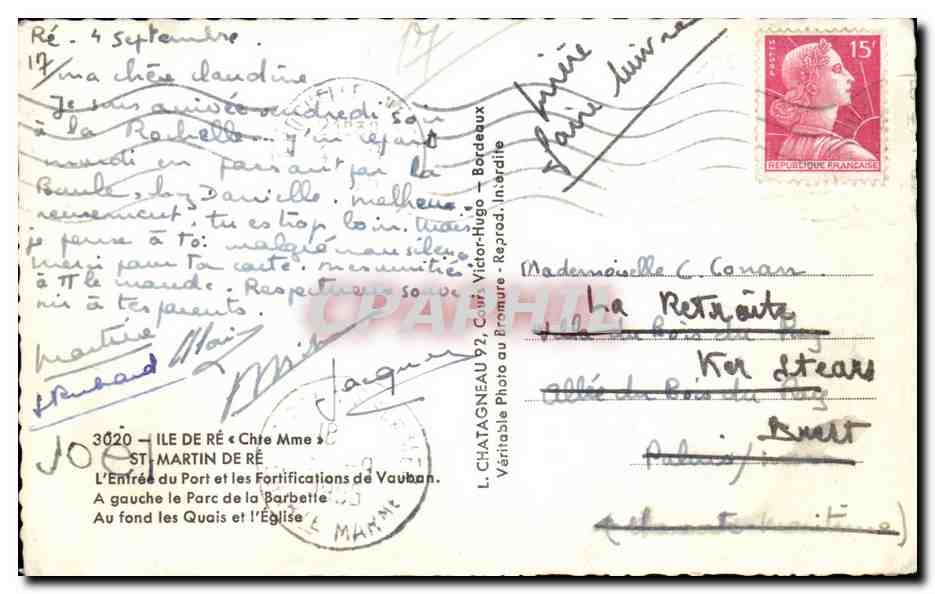 Ré - 4 Septembre.
17/ ma chère Claudine
Je suis arrivée vendredi soir
à la Rochelle. J'en repars
mardi en passant par la
Baule, chez Danielle. Malheu-
reusement, tu es trop loin. Mais
je pense à toi malgré mon silence
Merci pour ta carte. Mes amitiés
à Tt le monde. Respectueux souve-
nirs à tes parents.
Martine
Alain
Jacques
JOËL
3020 - ILE DE RÉ « Chte Mme »
ST-MARTIN DE RÉ
L'Entrée du Port et les Fortifications de Vauban.
A gauche le Parc de la Barbette
Au fond les Quais et l'Église
L. CHATAGNEAU 92, Cours Victor-Hugo - Bordeaux
Véritable Photo au Bromure - Reprod. Interdite
Prière
Faire suivre
POSTES
15F
REPUBLIQUE FRANÇAISE
Mademoiselle C. Conan
La Retraite
Villa du Bois du Roy
Ker Stears
Allée du Bois du Roy
Brest
Palais/
(Charente Maritime)
18
MARME
CPAPHIL